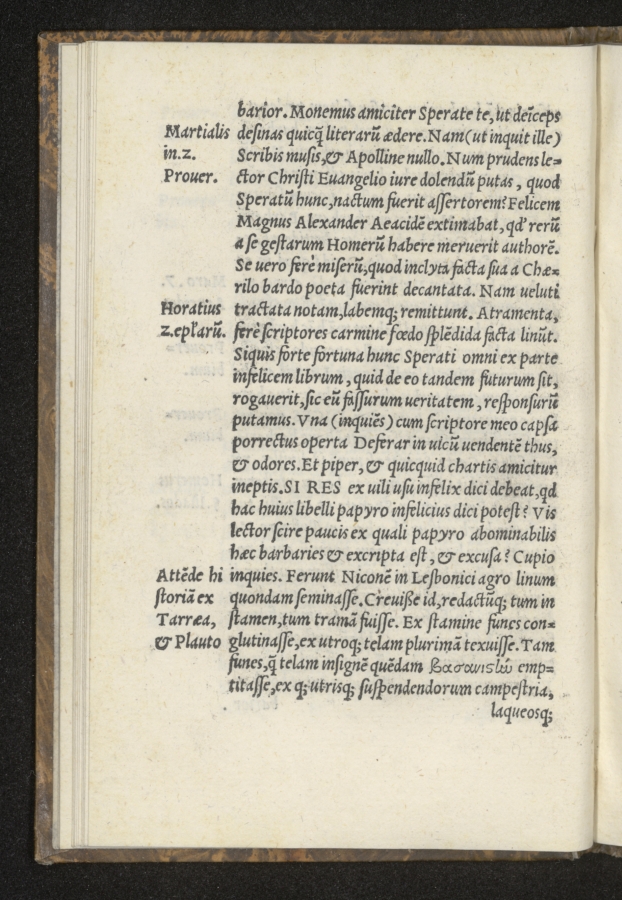 barior. Monemus amiciter Sperate te, ut deīceps
Martialis desinas quicq̃ literarū ædere. Nam (ut inquit ille)
in.2. Scribis musis, & Apolline nullo. Num prudens le=
Prouer. ctor Christi Euangelio iure dolendū putas, quod
Speratū hunc, nactum fuerit assertorem? Felicem
Magnus Alexander Aeacidē extimabat, qd' rerū
a se gestarum Homerū habere meruerit authorē.
Se uero ferè miserū, quod inclyta facta sua a Chæ=
rilo bardo poeta fuerint decantata. Nam ueluti
Horatius tractata notam, labemq; remittunt. Atramenta,
2.epl'arū. ferè scriptores carmine fœdo splēdida facta linūt.
Siquis forte fortuna hunc Sperati omni ex parte
infelicem librum, quid de eo tandem futurum sit,
rogauerit, sic eū fassurum ueritatem, responsurū
putamus. Vna (inquiēs) cum scriptore meo capsa
porrectus operta Deferar in uicū uendentē thus,
& odores. Et piper, & quicquid chartis amicitur
ineptis. SI RES ex uili usu infelix dici debeat, qd
hac huius libelli papyro infelicius dici potest? Vis
lector scire paucis ex quali papyro abominabilis
hæc barbaries & excripta est, & excusa? Cupio
Attēde hi inquies. Ferunt Niconē in Lesbonici agro linum
storiā ex quondam seminasse. Creuiße id, redactūq; tum in
Tarræa, stamen, tum tramā fuisse. Ex stamine funes con=
& Plauto glutinasse, ex utroq; telam plurimā texuisse. Tam
funes, q̃ telam insignē quēdam emp=
titasse, ex q; utrisq; suspendendorum campestria,
laqueosq;